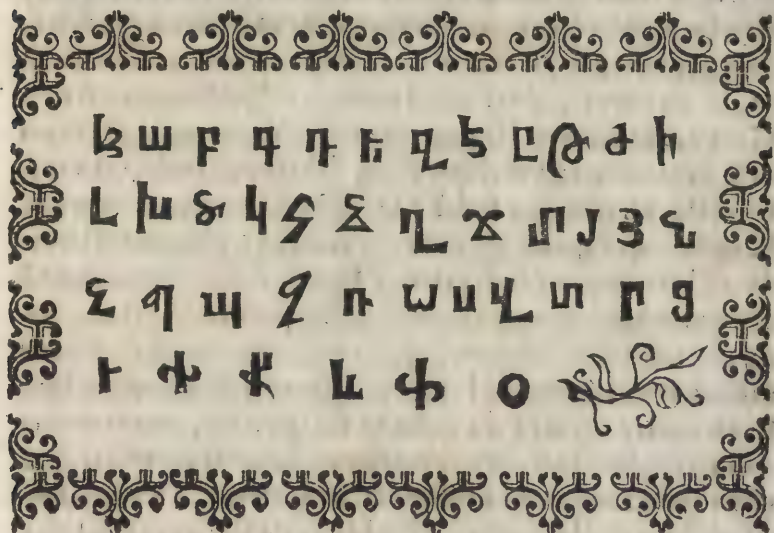 ա բ գ դ ե զ է ը թ ժ ի
լ խ ծ կ հ ձ ղ ճ մ յ յ ն
շ չ պ ջ ռ ս ս վ տ ր ց
ւ փ ք և ֆ օ